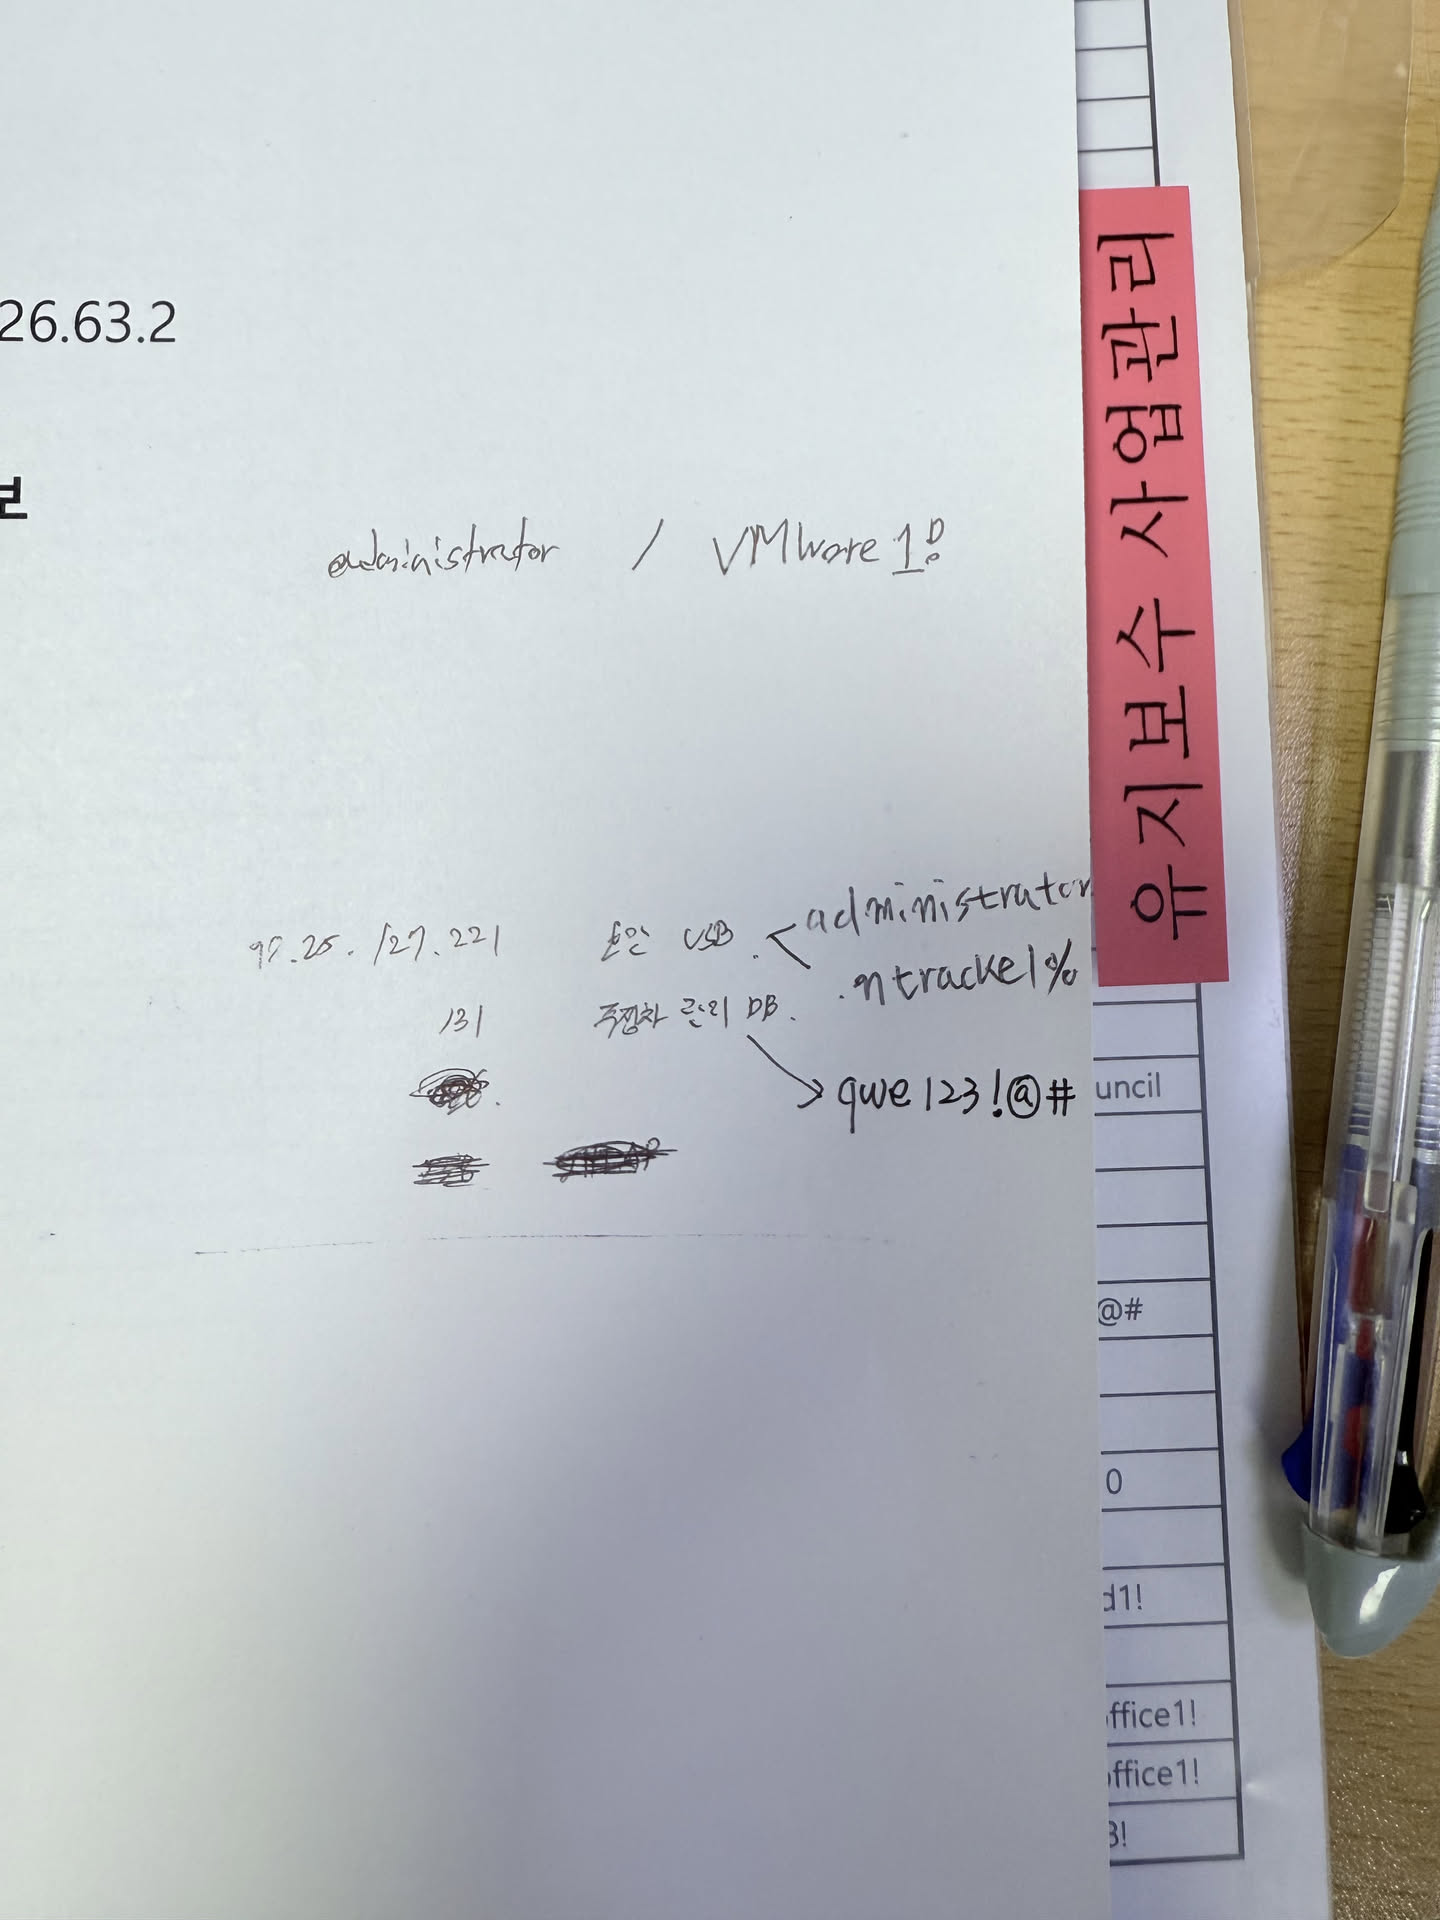 26.63.2
보
administrator / VMware1!
97.25.127.221 보안 USB. administrator
ntracke1%
131 주정차 관리 DB.
qwe123!@#
유지보수 사업관리
uncil
@#
0
d1!
ffice1!
office1!
3!